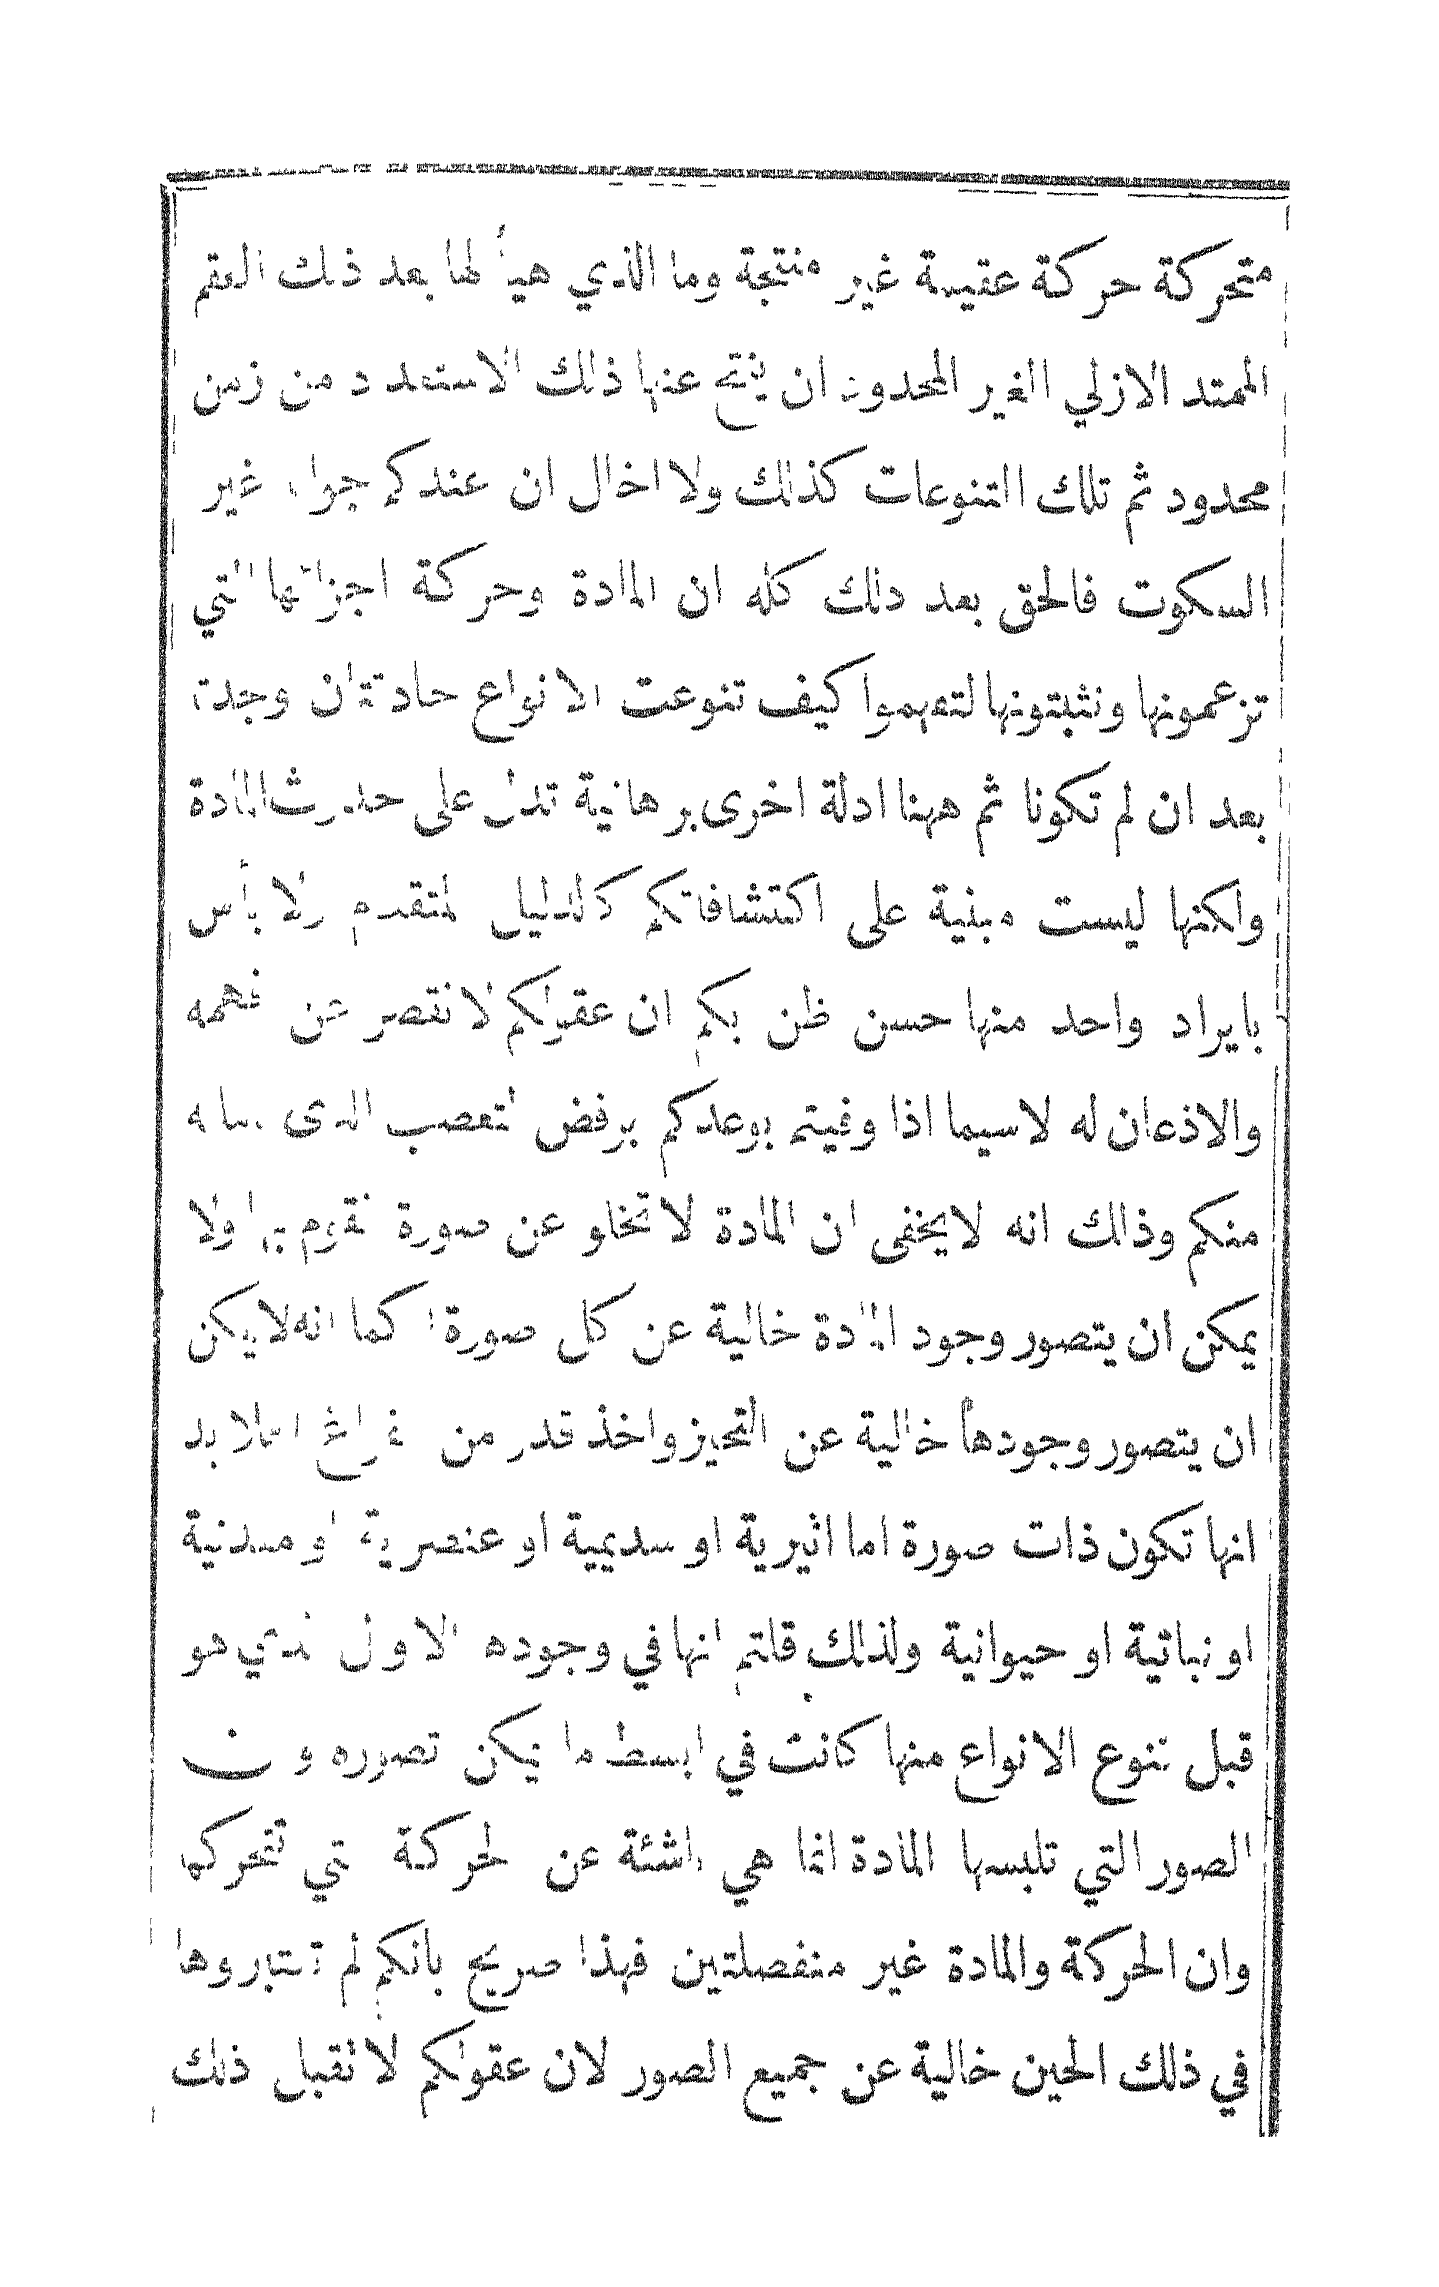 متحركة حركة عقيمة غير منتجة وما الذي هيأ لها بعد ذلك العقم
الممتد الازلي الغير المحدود ان ينتج عنها ذلك الاستعداد من زمن
محدود ثم تلك التنوعات كذلك ولا اخال ان عندكم جوابا غير
السكوت فالحق بعد ذلك كله ان المادة وحركة اجزائها التي
تزعمونها وتثبتونها لتفهموا كيف تنوعت الانواع حادثتان وجدتا
بعد ان لم تكونا ثم ههنا ادلة اخرى برهانية تدل على حدوث المادة
ولكنها ليست مبنية على اكتشافاتكم كالدليل المتقدم ولا بأس
بايراد واحد منها حسن ظن بكم ان عقولكم لا تقصر عن فهمه
والاذعان له لاسيما اذا وفيتم بوعدكم برفض التعصب الذي
منكم وذلك انه لا يخفى ان المادة لا تخلو عن صورة تقوم بها ولا
يمكن ان يتصور وجود المادة خالية عن كل صورة كما انه لا يمكن
ان يتصور وجودها خالية عن التحيز واخذ قدر من فراغ فلا بد
انها تكون ذات صورة اما اثيرية او سديمية او عنصرية او معدنية
او نباتية او حيوانية ولذلك قلتم انها في وجودها الاول الذي هو
قبل تنوع الانواع منها كانت في ابسط ما يمكن تصوره وان
الصور التي تلبسها المادة انما هي ناشئة عن الحركة التي تتحركها
وان الحركة والمادة غير منفصلتين فهذا صريح بانكم لم تعتبروها
في ذلك الحين خالية عن جميع الصور لان عقولكم لا تقبل ذلك